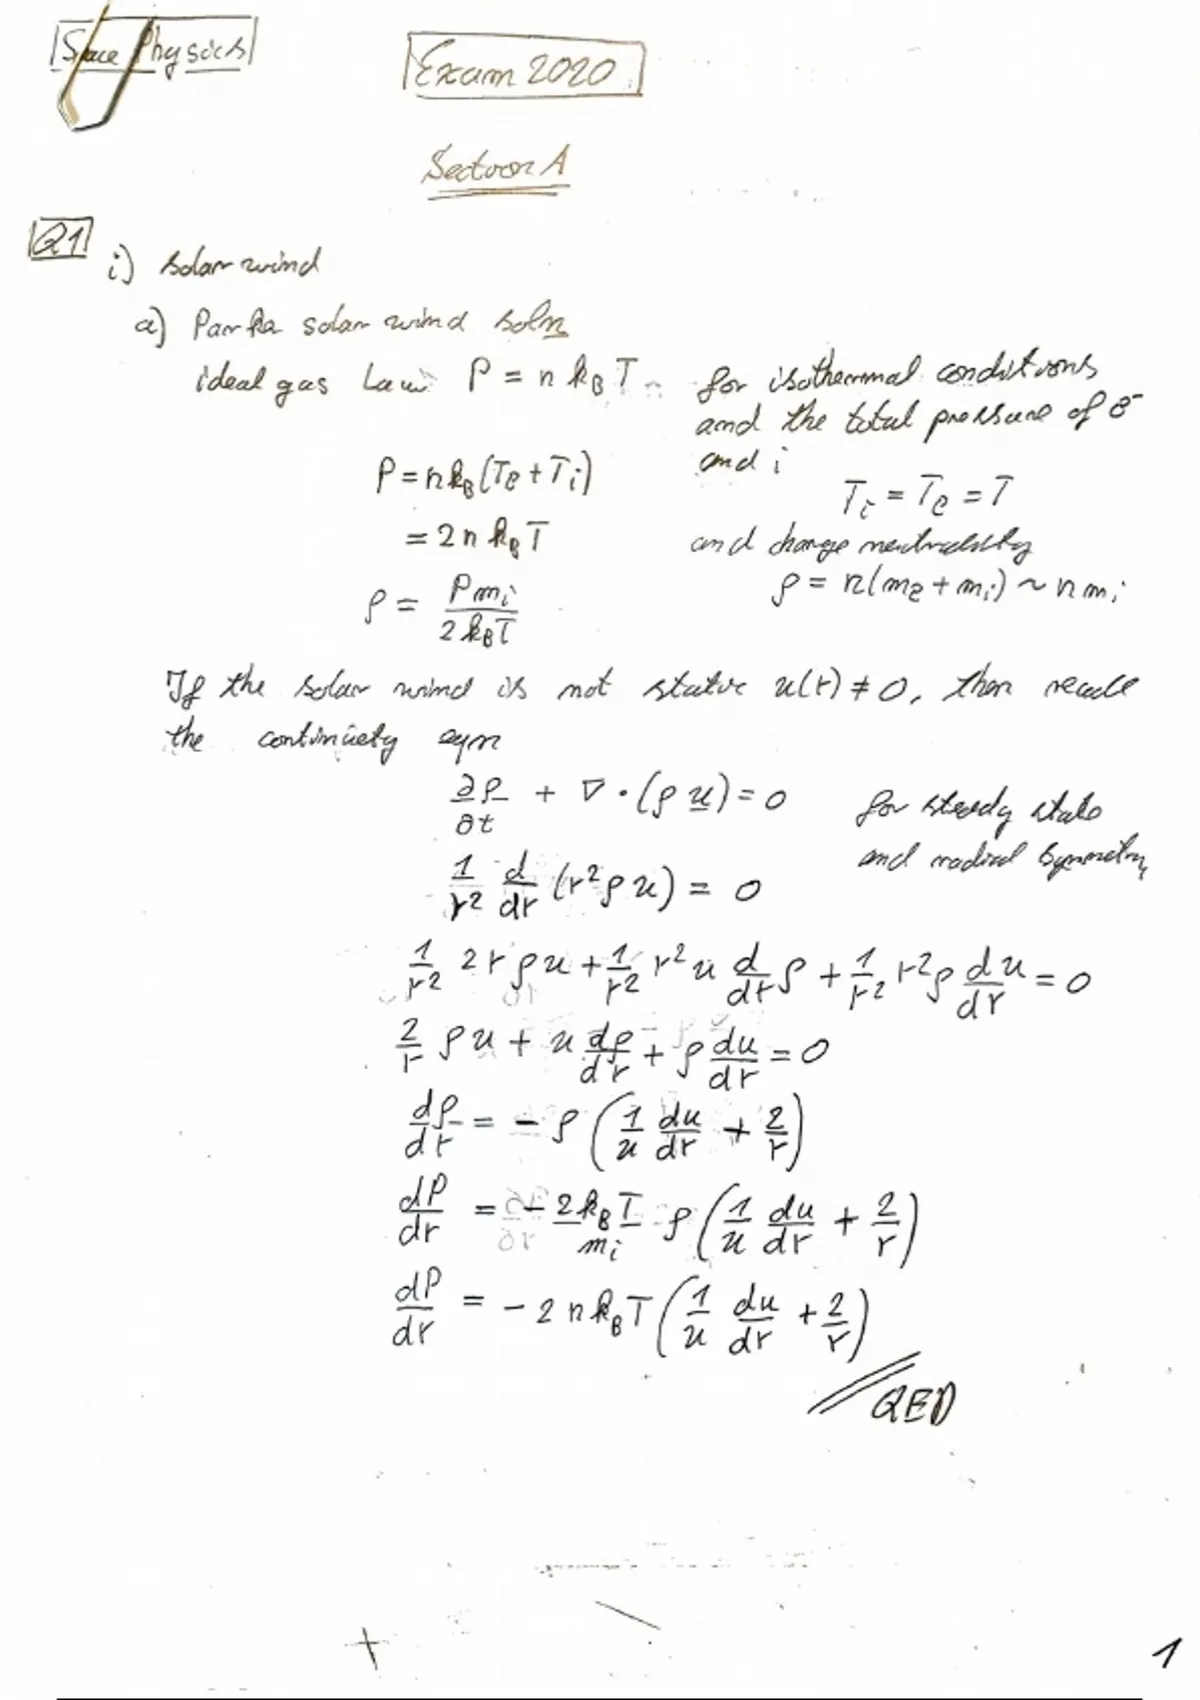 Space Physics
Exam 2020
Section A
Q1
i) solar wind
a) Parker solar wind soln
ideal gas law P = n k_B T for isothermal conditions
and the total pressure of e⁻
and i
P = n k_B (T_e + T_i)
T_i = T_e = T
= 2 n k_B T
and charge neutrality
ρ = P m_i / 2 k_B T
ρ = n(m_e + m_i) ~ n m_i
If the solar wind is not static u(r) ≠ 0, then recall
the continuety eqn
∂ρ/∂t + ∇ · (ρ u) = 0 for steady state
and radial symmetry
1/r² d/dr (r² ρ u) = 0
1/r² 2r ρ u + 1/r² r² u d/dr ρ + 1/r² r² ρ du/dr = 0
2/r ρ u + u dρ/dr + ρ du/dr = 0
dρ/dr = - ρ (1/u du/dr + 2/r)
dP/dr = - 2 k_B T / m_i ρ (1/u du/dr + 2/r)
dP/dr = - 2 n k_B T (1/u du/dr + 2/r)
QED
1